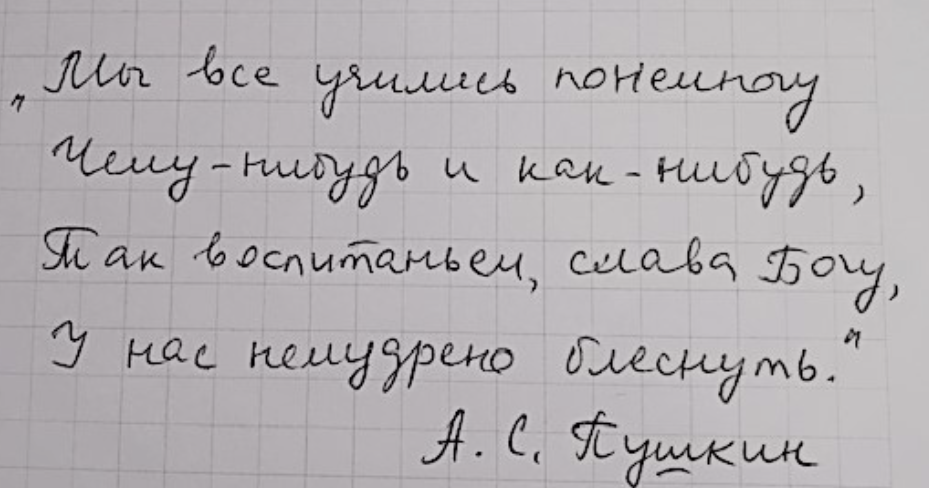 „Мы все учились понемногу
Чему-нибудь и как-нибудь,
Так воспитаньем, слава Богу,
У нас немудрено блеснуть."
А. С. Пушкин